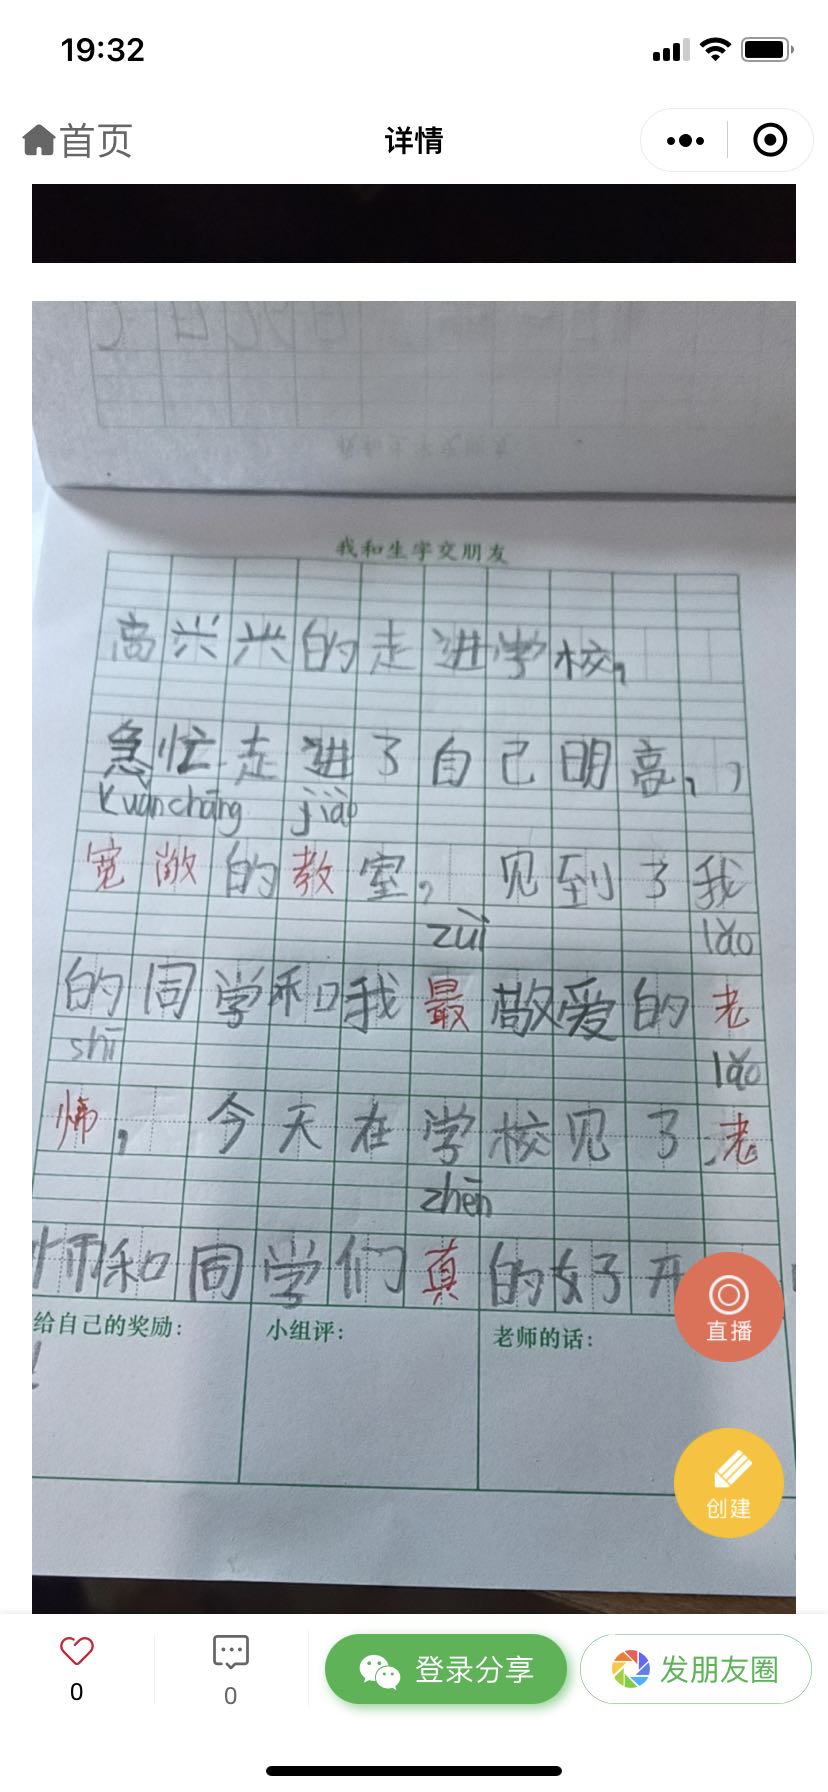 19:32
首页
详情
我和生字交朋友
高兴兴的走进学校,
急忙走进了自己明高,,
kuānchǎng jiào
宽敞的教室,见到了我
zuì lǎo
的同学和我最敬爱的老
shī
师,今天在学校见了老
lǎo
zhēn
师和同学们真的好开
给自己的奖励:
小组评:
老师的话:
直播
创建
0
0
登录分享
发朋友圈